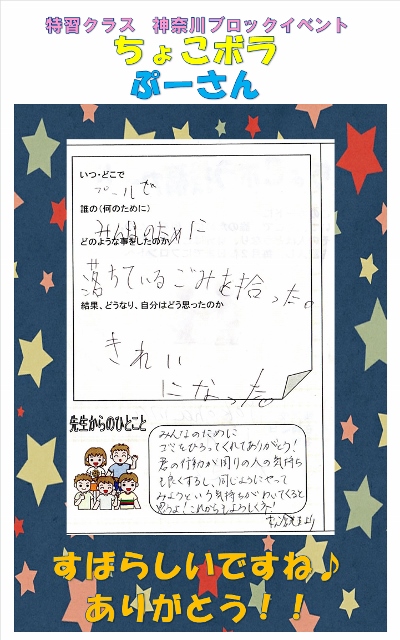 特習クラス 神奈川ブロックイベント
ちょこボラ
ぷーさん
いつ・どこで
プールで
誰の(何のために)
みんなのために
どのような事をしたのか
落ちているごみを拾った。
結果、どうなり、自分はどう思ったのか
きれい
になった。
先生からのひとこと
みんなのために
ゴミをひろってくれてありがとう!
君の行動が周りの人の気持ち
も良くするし、同じようにやって
みようという気持ちがわいてくると
思うよ!これからもよろしくネ!
より
すばらしいですね♪
ありがとう!!